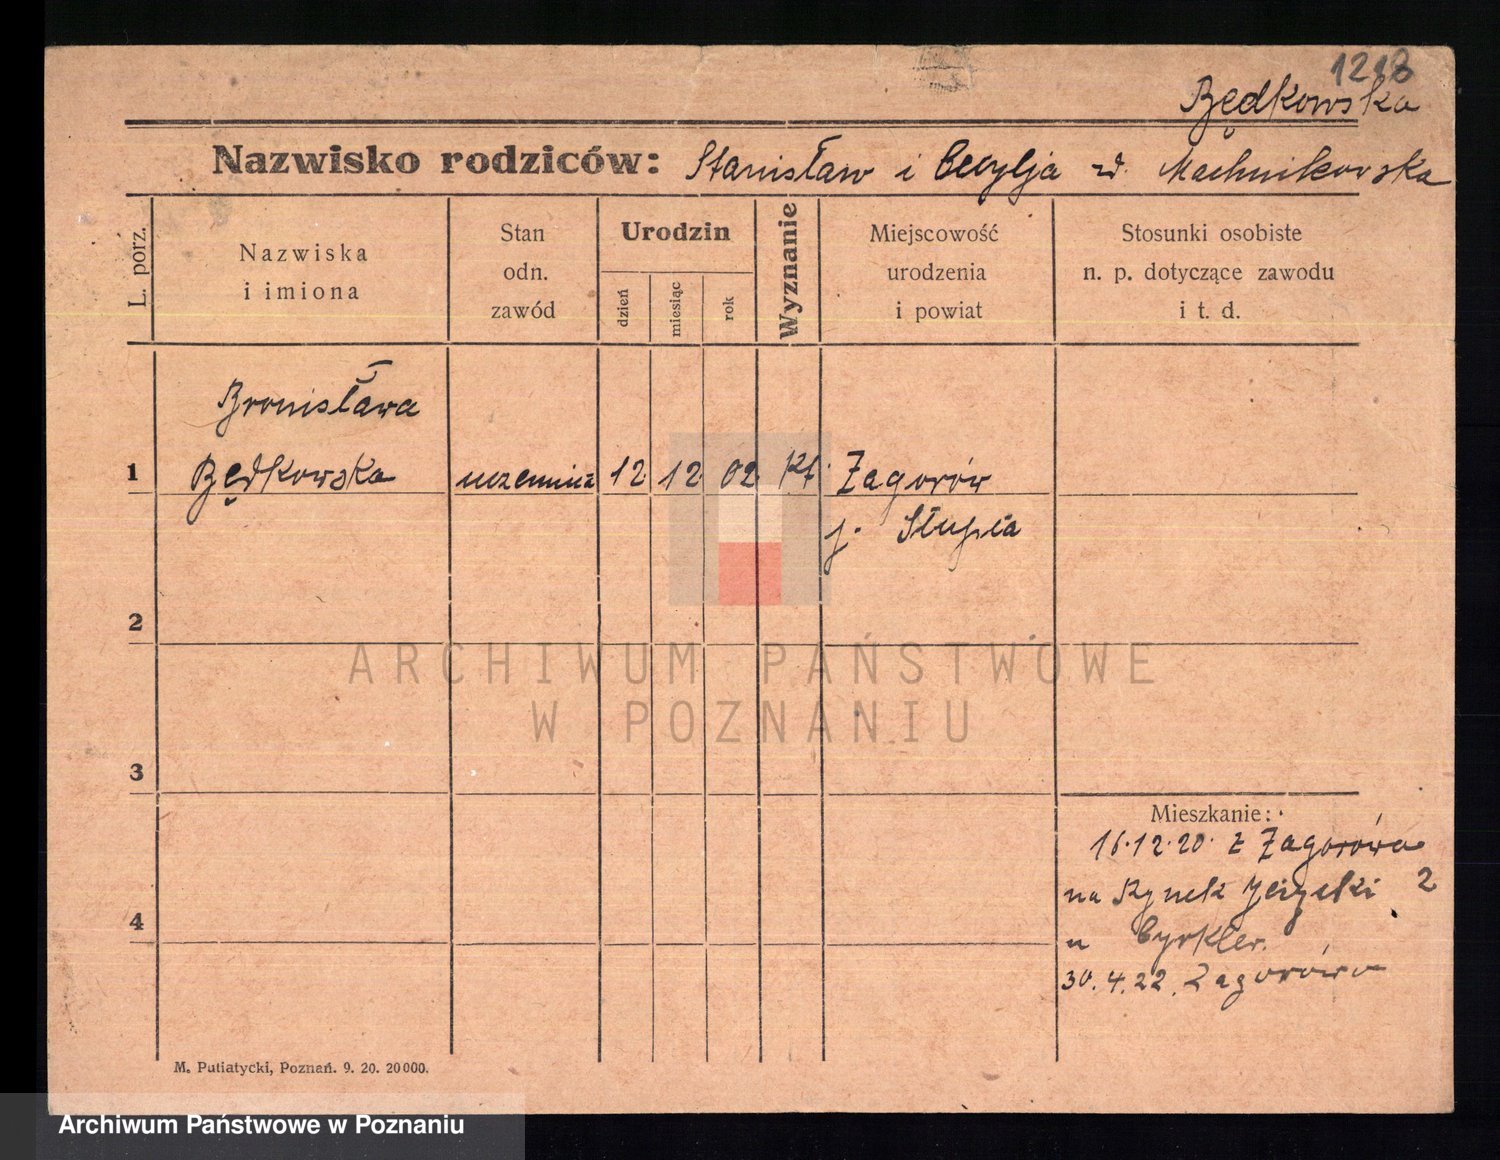 1218
Będkowska
Nazwisko rodziców: Stanisław i Cecylja zd. Machnikowska
L. porz.
Nazwiska
i imiona
Stan
odn.
zawód
Urodzin
dzień
miesiąc
rok
Wyznanie
Miejscowość
urodzenia
i powiat
Stosunki osobiste
n. p. dotyczące zawodu
i t. d.
Bronisława
1 Będkowska uczennica 12 12 02 kt. Zagorów
p. Słupca
2
3
4
Mieszkanie:
16.12.20. z Zagorówa
na Rynek 2
u Cyrkler.
30.4.22. Zagorówa
M. Putiatycki, Poznań. 9. 20. 20000.
ARCHIWUM PAŃSTWOWE
W POZNANIU
Archiwum Państwowe w Poznaniu